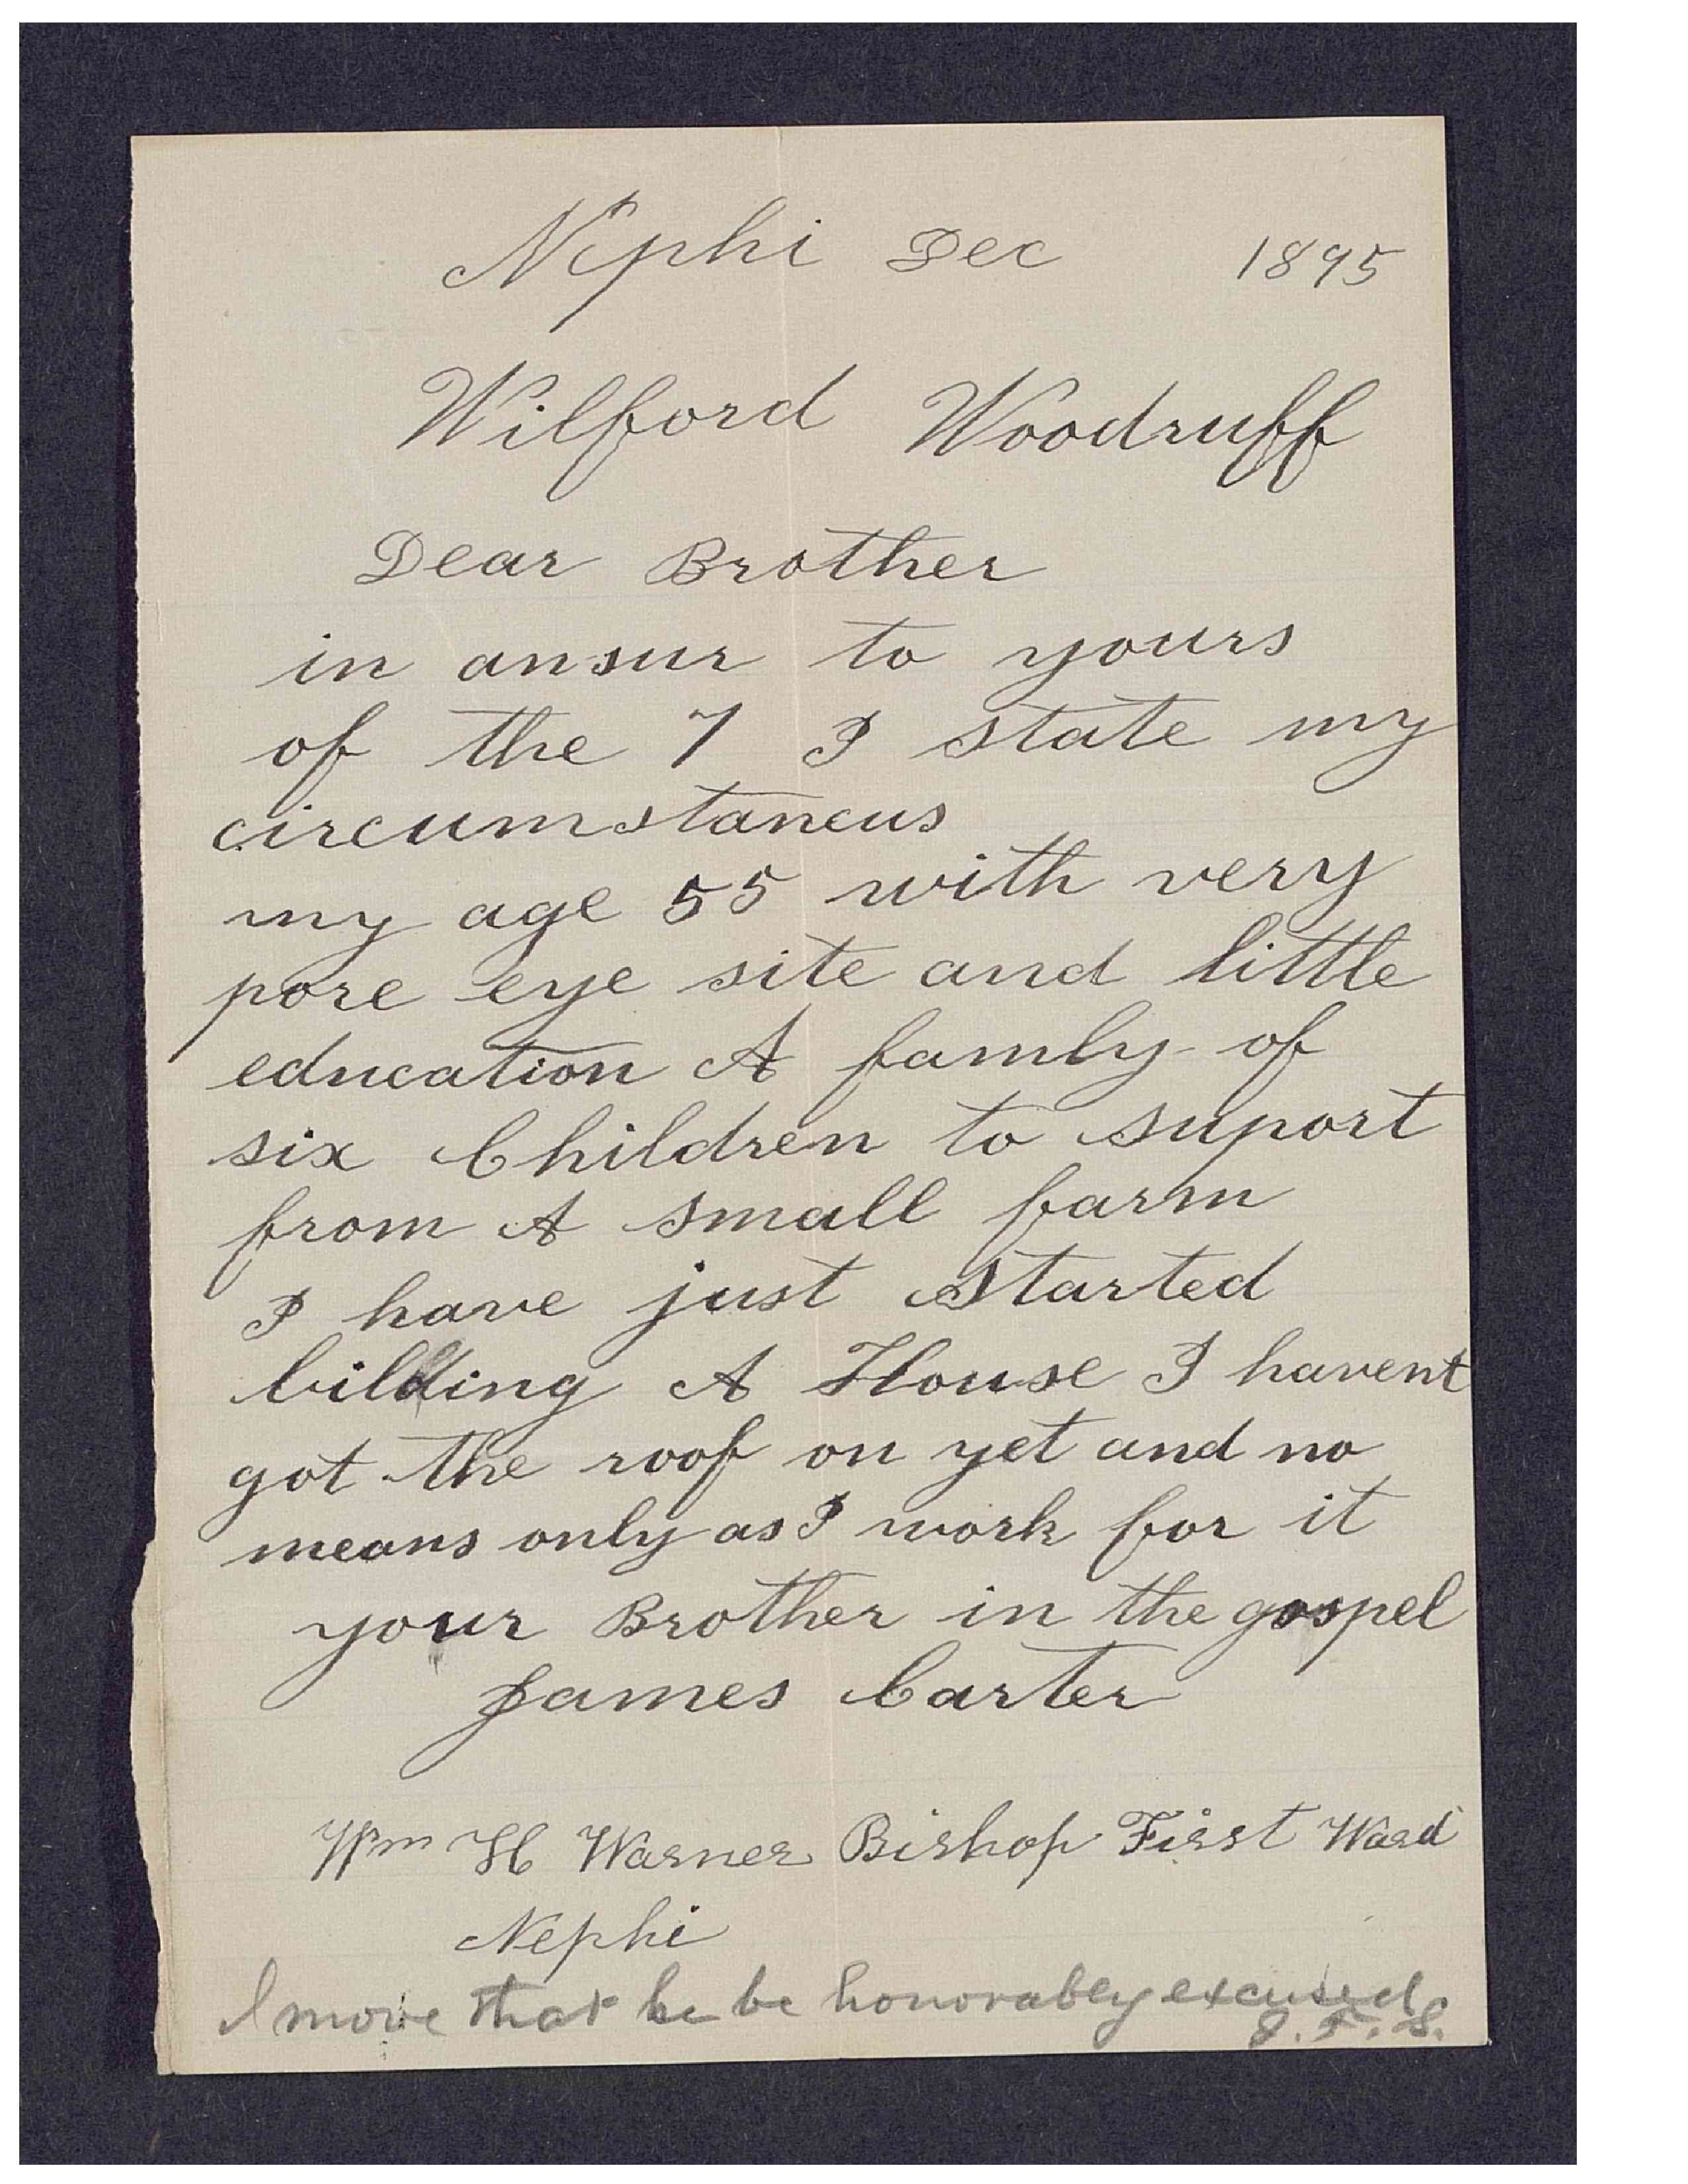 Nephi Dec 1895
Wilford Woodruff
Dear Brother
in ansur to yours
of the 7 I state my
circumstancus
my age 55 with very
pore eye site and little
education A famly of
six Children to suport
from A small farm
I have just started
bilding A House I havent
got the roof on yet and no
means only as I work for it
your Brother in the gospel
James Carter
Wm H Warner Bishop First Ward
Nephi
I move that he be honorabley excused
J. F. S.